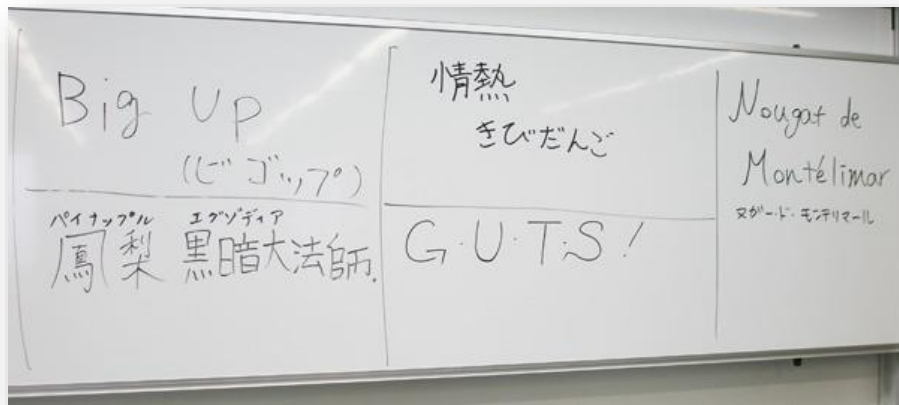 Big Up
(ビゴップ)
パイナップル エグゾディア
鳳梨 黒暗大法師.
情熱
きびだんご
G・U・T・S!
Nougat de
Montélimar
ヌガー・ド・モンテリマール